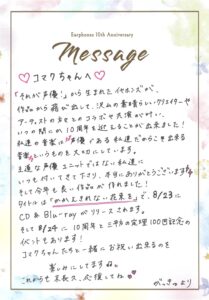 Earphones 10th Anniversary
Message
♡ コマクちゃんへ ♡
「それが声優！」から生まれたイヤホンズが、
作品から飛び出して、沢山の素晴らしいクリエイターや
アーティストの方々とのコラボや共演が叶い、
いつの間にか10周年を迎えることが出来ました！
私達の音楽は声優である私達だからこそ出来る
音楽というものを大切にしています。
王道な声優ユニットではない私達に
いつも付いて来て下さり、本当にありがとうございます
そして今年も良い作品が作れました！
タイトルは「かめさきれない花束を」で、8/23に
CD & Blu-ray がリリースされます。
そして 8/24に10周年と三平方の定理100回記念の
イベントもあります！
コマクちゃんたちと一緒にお祝い出来るのを
楽しみにしてますね。
これからも末長く、応援してね♡
がっきぃより